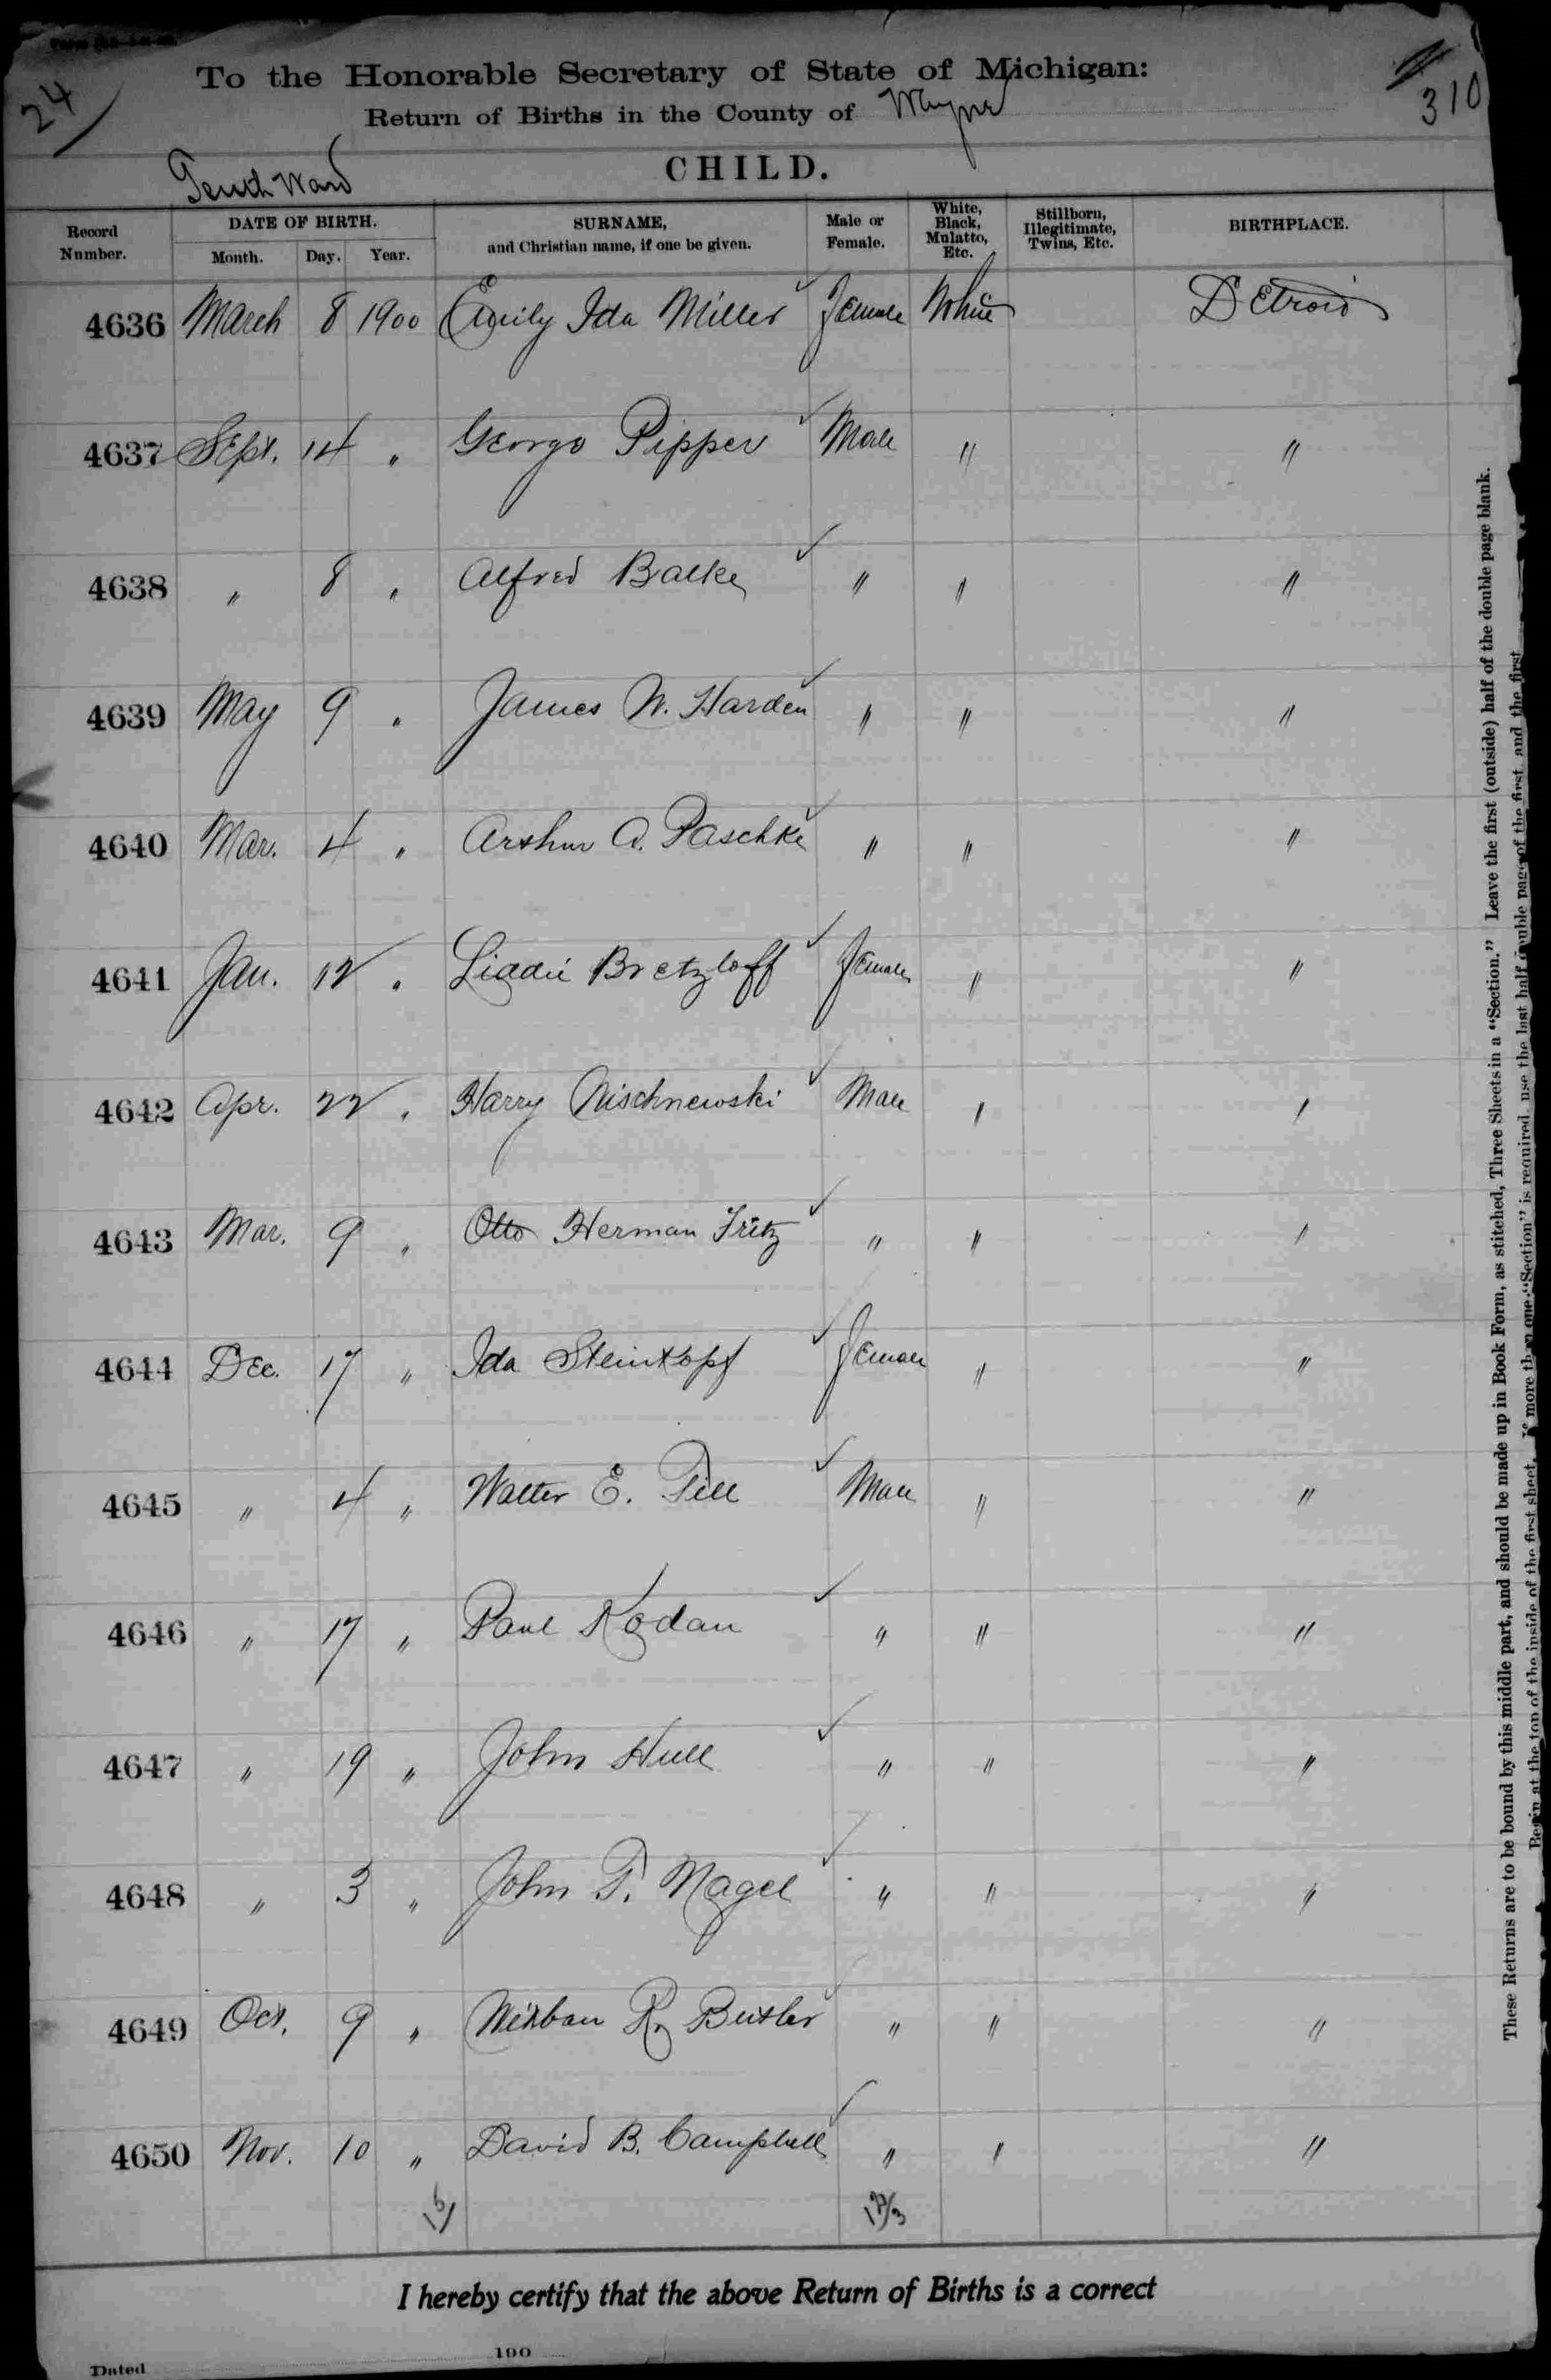 24
To the Honorable Secretary of State of Michigan:
310
Return of Births in the County of Wayne
Tenth Ward
CHILD.
Record Number.
DATE OF BIRTH.
Month. Day. Year.
SURNAME, and Christian name, if one be given.
Male or Female.
White, Black, Mulatto, Etc.
Stillborn, Illegitimate, Twins, Etc.
BIRTHPLACE.
4636 March 8 1900 Emily Ida Miller Female White Detroit
4637 Sept. 14 " George Pipper Male " "
4638 " 8 " Alfred Balke " " "
4639 May 9 " James W. Harden " " "
4640 Mar. 4 " Arthur A. Paschke " " "
4641 Jan. 12 " Bretzloff Female " "
4642 Apr. 22 " Harry Male " "
4643 Mar. 9 " Otto Herman Fritz " " "
4644 Dec. 17 " Ida Steinkopf Female " "
4645 " 4 " Walter E. Male " "
4646 " 17 " Paul Kodan " " "
4647 " 19 " John Hull " " "
4648 " 3 " John F. Nagel " " "
4649 Oct. 9 " R. Butler " " "
4650 Nov. 10 " David B. Campbell " " "
I hereby certify that the above Return of Births is a correct
Dated 190
These Returns are to be bound by this middle part, and should be made up in Book Form, as stitched, Three Sheets in a "Section." Leave the first (outside) half of the double page blank.
Begin at the top of the inside of the first sheet. If more than one "Section" is required, use the last half double page of the first, and the first